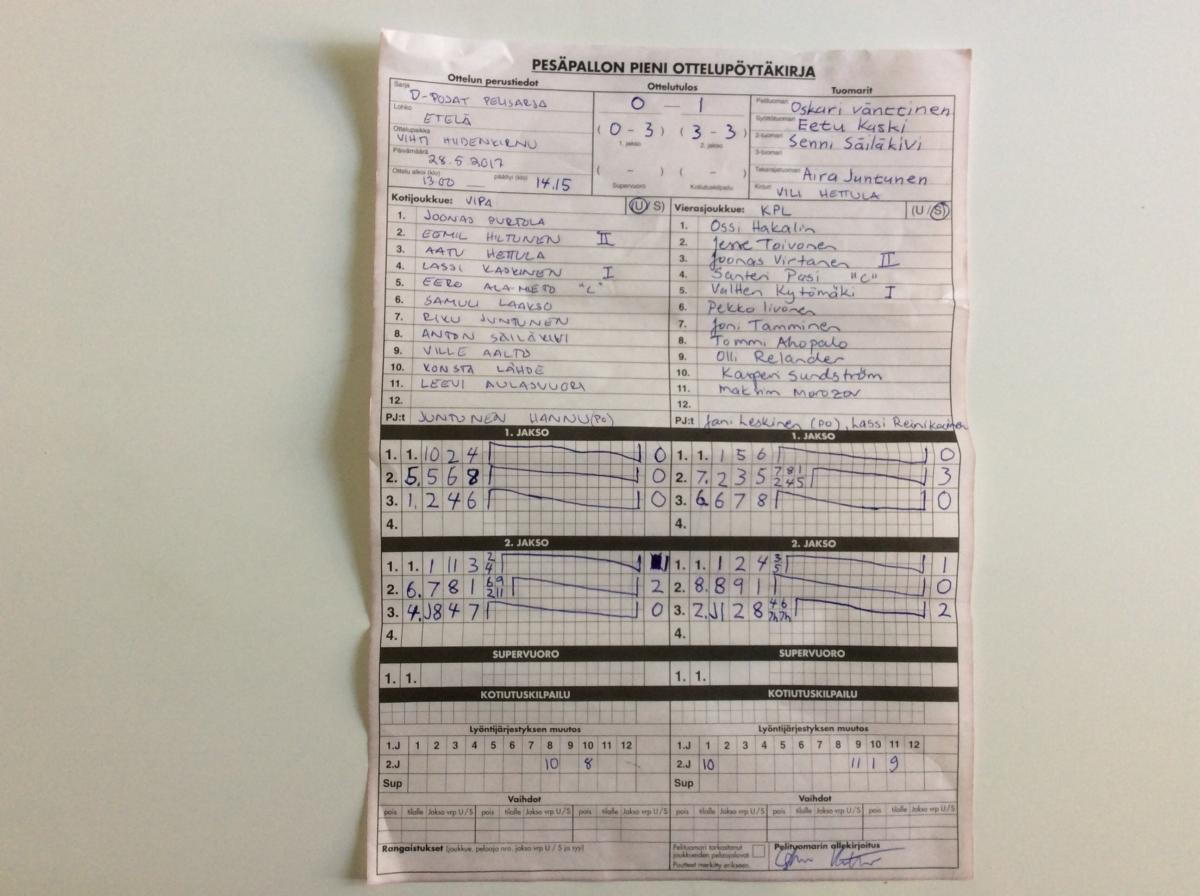 PESÄPALLON PIENI OTTELUPÖYTÄKIRJA
Ottelun perustiedot
Sarja D-POJAT PELISARJA
Lohko ETELÄ
Ottelupaikka VIHTI HIIDENKIRNU
Päivämäärä 28.5.2017
Ottelu alkoi (klo) 13.00 päättyi (klo) 14.15
Ottelutulos
0 - 1
(0 - 3) (3 - 3)
1. jakso 2. jakso
( - ) ( - )
Supervuoro Kotiutuskilpailu
Tuomarit
Pelituomari Oskari Vänttinen
Syöttötuomari Eetu Kaski
2-tuomari Senni Säiläkivi
3-tuomari
Takarajatuomari Aira Juntunen
Kirjuri VILI HETTULA
Kotijoukkue: VIPA (U/S)
1. JOONAS PURTOLA
2. EEMIL HILTUNEN II
3. AATU HETTULA
4. LASSI KASKINEN I
5. EERO ALA-NIETO "C"
6. SAMULI LAAKSO
7. RIKU JUNTUNEN
8. ANTON SÄILÄKIVI
9. VILLE AALTO
10. KONSTA LÄHDE
11. LEEVI AULASVUORI
12.
PJ:t JUNTUNEN HANNU (PO)
Vierasjoukkue: KPL (U/S)
1. Ossi Hakalin
2. Jesse Toivonen
3. Joonas Virtanen II
4. Santeri Pasi "C"
5. Valtteri Kytömäki I
6. Pekko Iivonen
7. Joni Tamminen
8. Tommi Ahopalo
9. Olli Relander
10. Kasperi Sundström
11. Maksim Morozov
12.
PJ:t Jani Leskinen (PO), Lassi Reinikainen
1. JAKSO
1. 1. 10 2 4 0
2. 5. 5 6 8 0
3. 1. 2 4 6 0
4.
1. JAKSO
1. 1. 1 5 6 0
2. 7. 2 3 5 7 8 1 2 4 5 3
3. 6. 6 7 8 0
4.
2. JAKSO
1. 1. 1 11 3 2 4
2. 6. 7 8 1 6 9 2 11 2
3. 4. J8 4 7 0
4.
2. JAKSO
1. 1. 1 2 4 3 5 1
2. 8. 8 9 1 0
3. 2. J1 2 8 4 6 7h 7h 2
4.
SUPERVUORO
1. 1.
SUPERVUORO
1. 1.
KOTIUTUSKILPAILU
KOTIUTUSKILPAILU
Lyöntijärjestyksen muutos
1.J 1 2 3 4 5 6 7 8 9 10 11 12
2.J 10 8
Sup
Lyöntijärjestyksen muutos
1.J 1 2 3 4 5 6 7 8 9 10 11 12
2.J 10 11 1 9
Sup
Vaihdot
pois tilalle Jakso vrp U/S pois tilalle Jakso vrp U/S pois tilalle Jakso vrp U/S
Vaihdot
pois tilalle Jakso vrp U/S pois tilalle Jakso vrp U/S pois tilalle Jakso vrp U/S
Rangaistukset (joukkue, pelaaja nro, jakso vrp U/S ja syy)
Pelituomari tarkastanut
joukkueiden pelaajaluvat
Puutteet merkitty erikseen.
Pelituomarin allekirjoitus